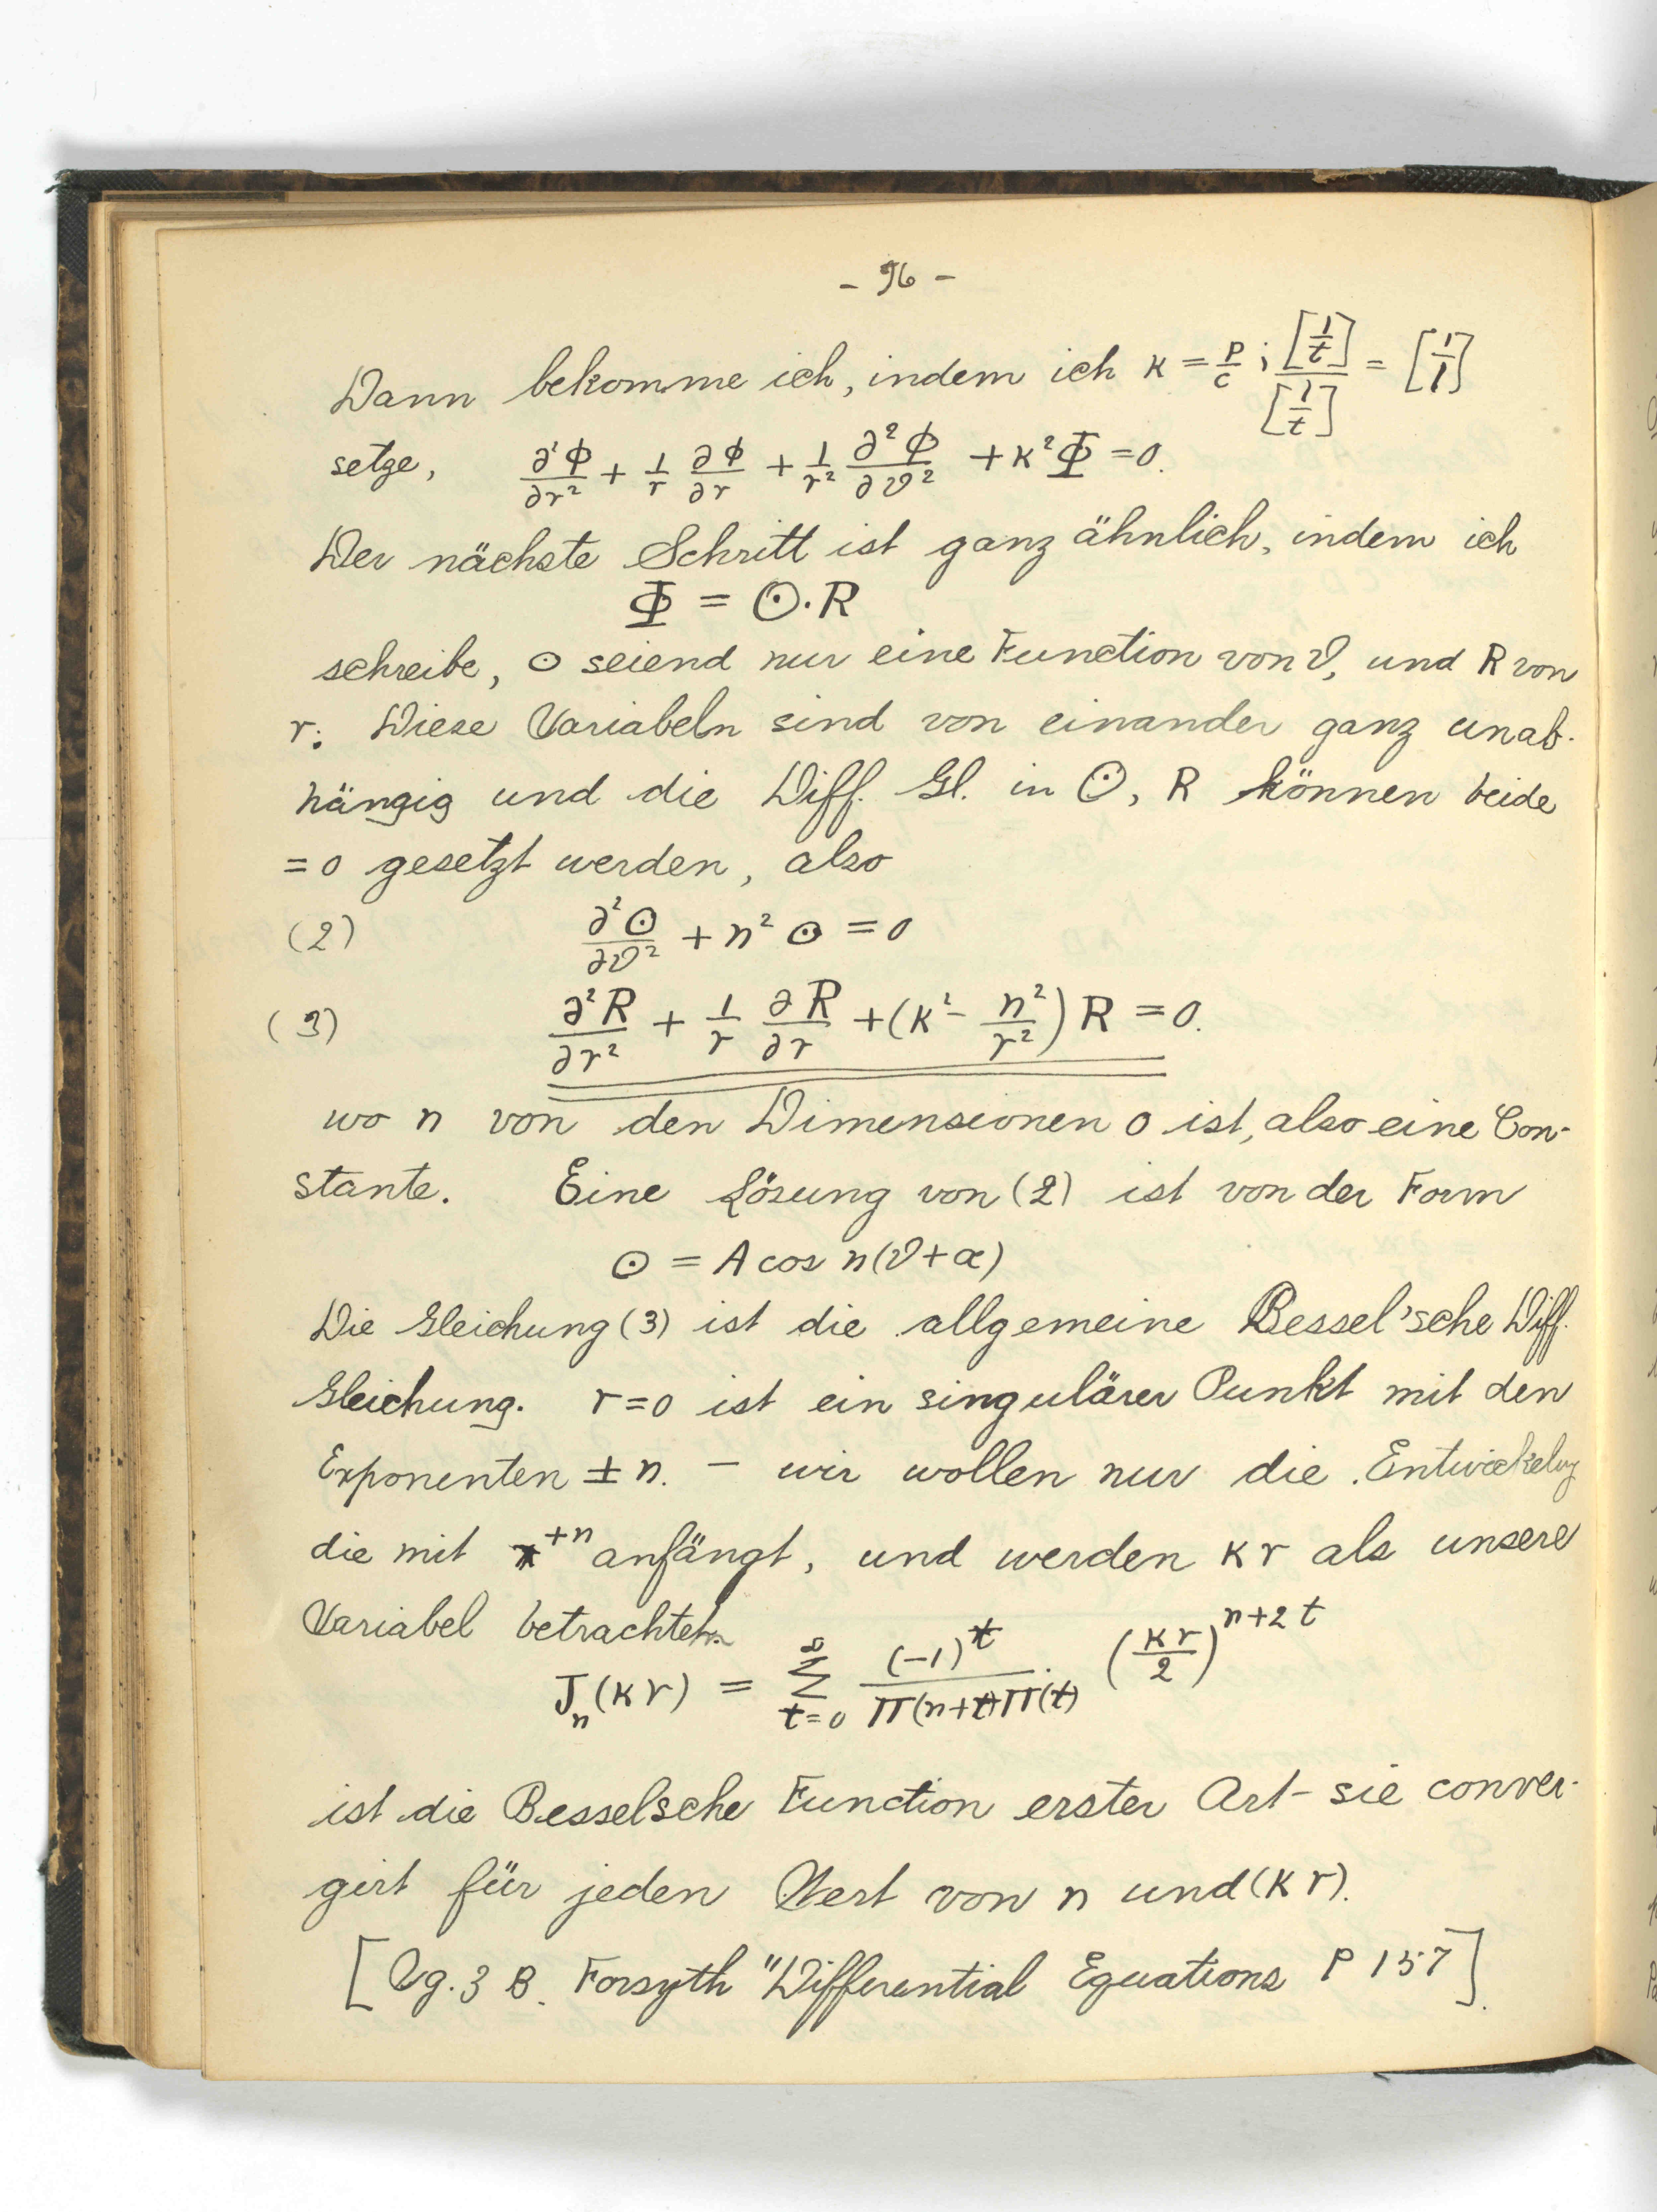 - 96 -
Dann bekomme ich, indem ich κ = p/c ; [1/t]/[1/t] = [1/l]
setze, ∂²Φ/∂r² + 1/r ∂Φ/∂r + 1/r² ∂²Φ/∂ϑ² + κ²Φ = 0.
Der nächste Schritt ist ganz ähnlich, indem ich
Φ = Θ·R
schreibe, Θ seiend nur eine Function von ϑ, und R von
r. Diese Variabeln sind von einander ganz unab-
hängig und die Diff. Gl. in Θ, R können beide
= 0 gesetzt werden, also
(2) ∂²Θ/∂ϑ² + n² Θ = 0
(3) ∂²R/∂r² + 1/r ∂R/∂r + (κ² - n²/r²) R = 0.
wo n von den Dimensionen 0 ist, also eine Con-
stante. Eine Lösung von (2) ist von der Form
Θ = A cos n(ϑ+α)
Die Gleichung (3) ist die allgemeine Bessel'sche Diff.
Gleichung. r=0 ist ein singulärer Punkt mit den
Exponenten ± n. – wir wollen nur die Entwickelung
die mit r⁺ⁿ anfängt, und werden κr als unsere
Variabel betrachten
Jₙ(κr) = ∑_{t=0}^{∞} (-1)^t / Π(n+t)Π(t) · (κr/2)^{n+2t}
ist die Besselsche Function erster Art – sie conver-
girt für jeden Wert von n und (κr).
[Vg. z B. Forsyth "Differential Equations P 157].